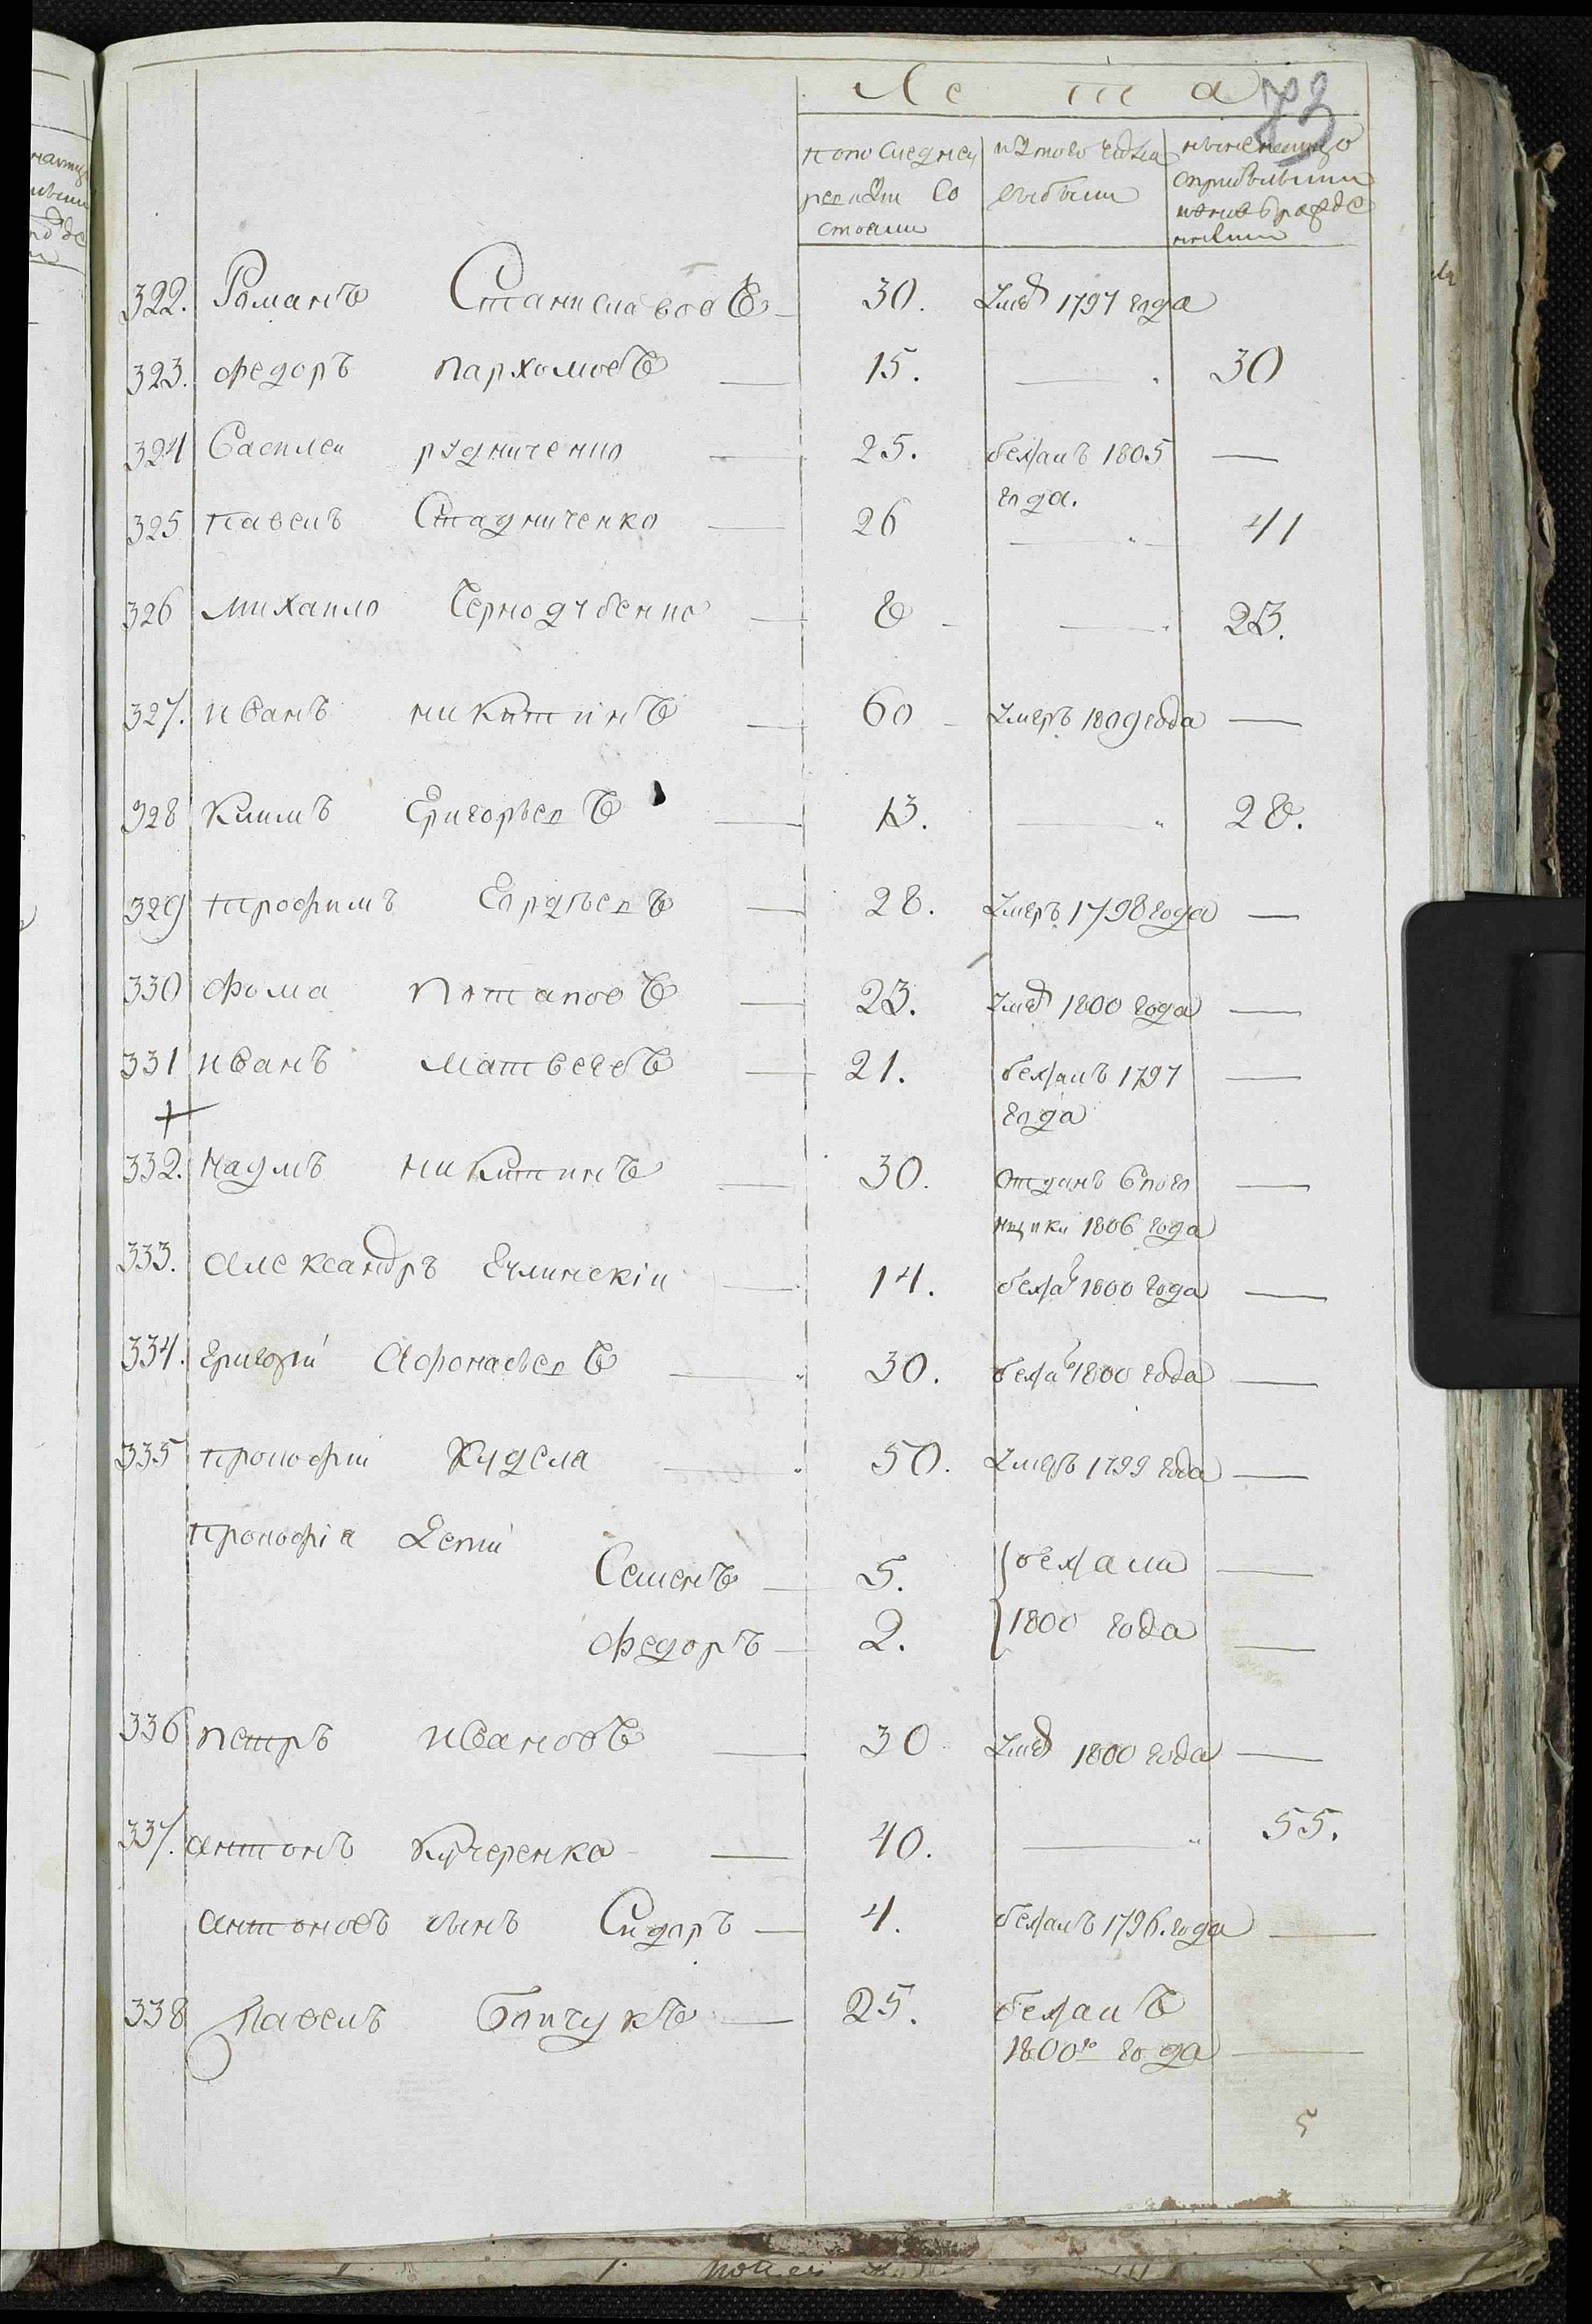 Лета 73
по последней | из того числа | ныне налицо
ревизи со | выбыли | с прибылыми
стояли | и вновь рожде
нными
322. Романъ Станиславовъ 30. Умеръ 1797 года
323. Федоръ Пархомовъ — 15. — 30
324 Василей Рудниченко — 25. бежалъ 1805 —
года.
325 Павелъ Стадниченко — 26 — 41
326 Михаило Чернодубенко — 8 — 23.
327. Иванъ Никитинъ — 60 Умеръ 1809 года —
328 Климъ Григорьевъ — 13. — 28.
329 Трофимъ Гордѣевъ — 28. Умеръ 1798 года —
330 Фома Потаповъ — 23. Умеръ 1800 года —
331 Иванъ Матвеевъ — 21. бежалъ 1797 —
года
+
332. Наумъ Никитинъ — 30. отданъ в пого —
нщики 1806 года
333. Александръ — 14. бежалъ 1800 года —
334. Григорій Афонасьевъ — 30. бежалъ 1800 года —
335 Прокофій Кудела — 50. Умеръ 1799 года —
Прокофія дети
Семенъ — 5. бежали —
Федоръ — 2. 1800 года —
336 Петръ Ивановъ — 30 Умеръ 1800 года —
337. Антонъ Кучеренко — 40. — 55.
Антоновъ сынъ Сидоръ — 4. бежалъ 1796. года —
338 Павелъ Бончукъ — 25. бежалъ
1800го года —
5